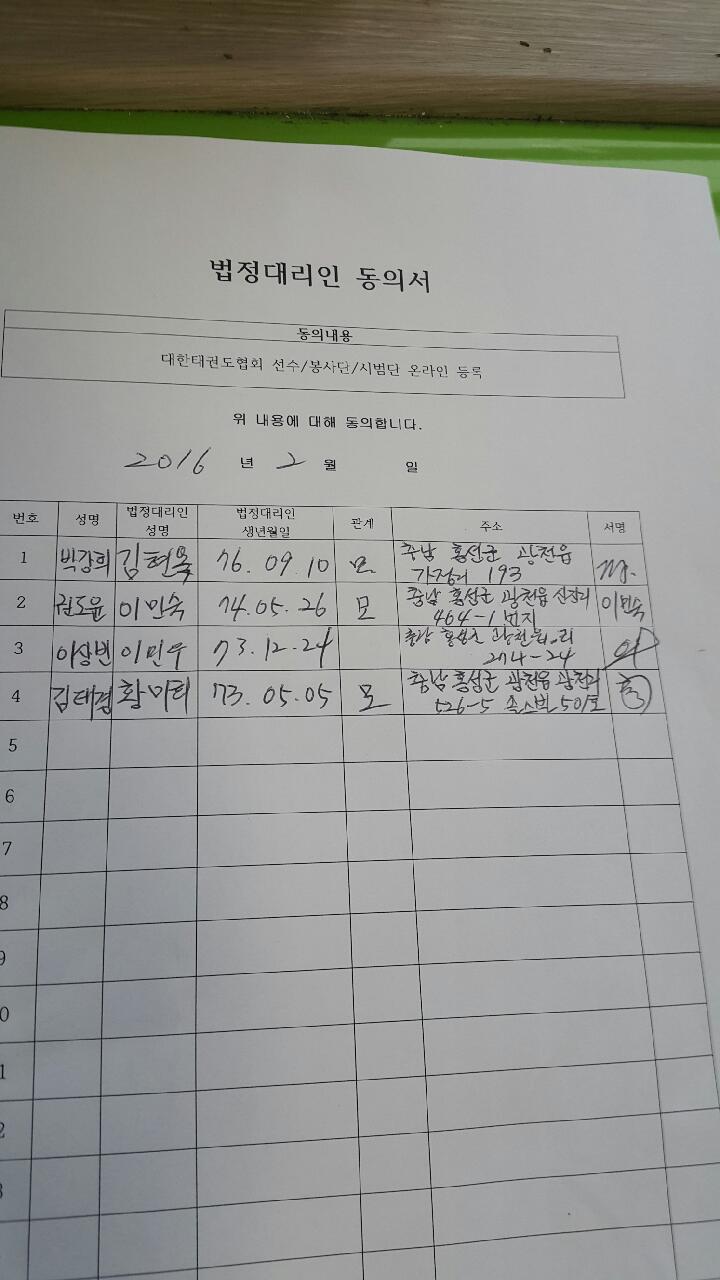 법정대리인 동의서
동의내용
대한태권도협회 선수/봉사단/시범단 온라인 등록
위 내용에 대해 동의합니다.
2016 년 2 월 일
번호 성명 법정대리인 성명 법정대리인 생년월일 관계 주소 서명
1 박강희 김현옥 76.09.10 모 충남 홍성군 광천읍
가정리 193
2 도윤 이민숙 74.05.26 모 충남 홍성군 광천읍 신진리 이민숙
464-1 번지
3 이상빈 이민우 73.12.24 충남 홍성군 광천읍
274-24
4 김태 황미 73.05.05 모 충남 홍성군 광천읍 광천리
526-5 501호
5
6
7
8
9
0
1
2
3